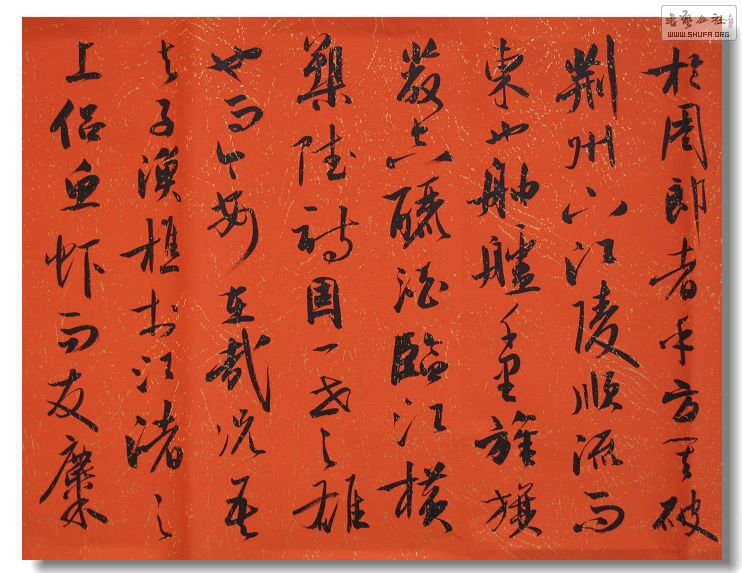 於周郎者乎方其破
荆州下江陵順流而
東也舳艫千里旌旗
蔽空釃酒臨江横
槊賦詩固一世之雄
也而今安在哉况吾
与子漁樵於江渚之
上侣魚虾而友麋
書藝公社
WWW.SHUFA.ORG